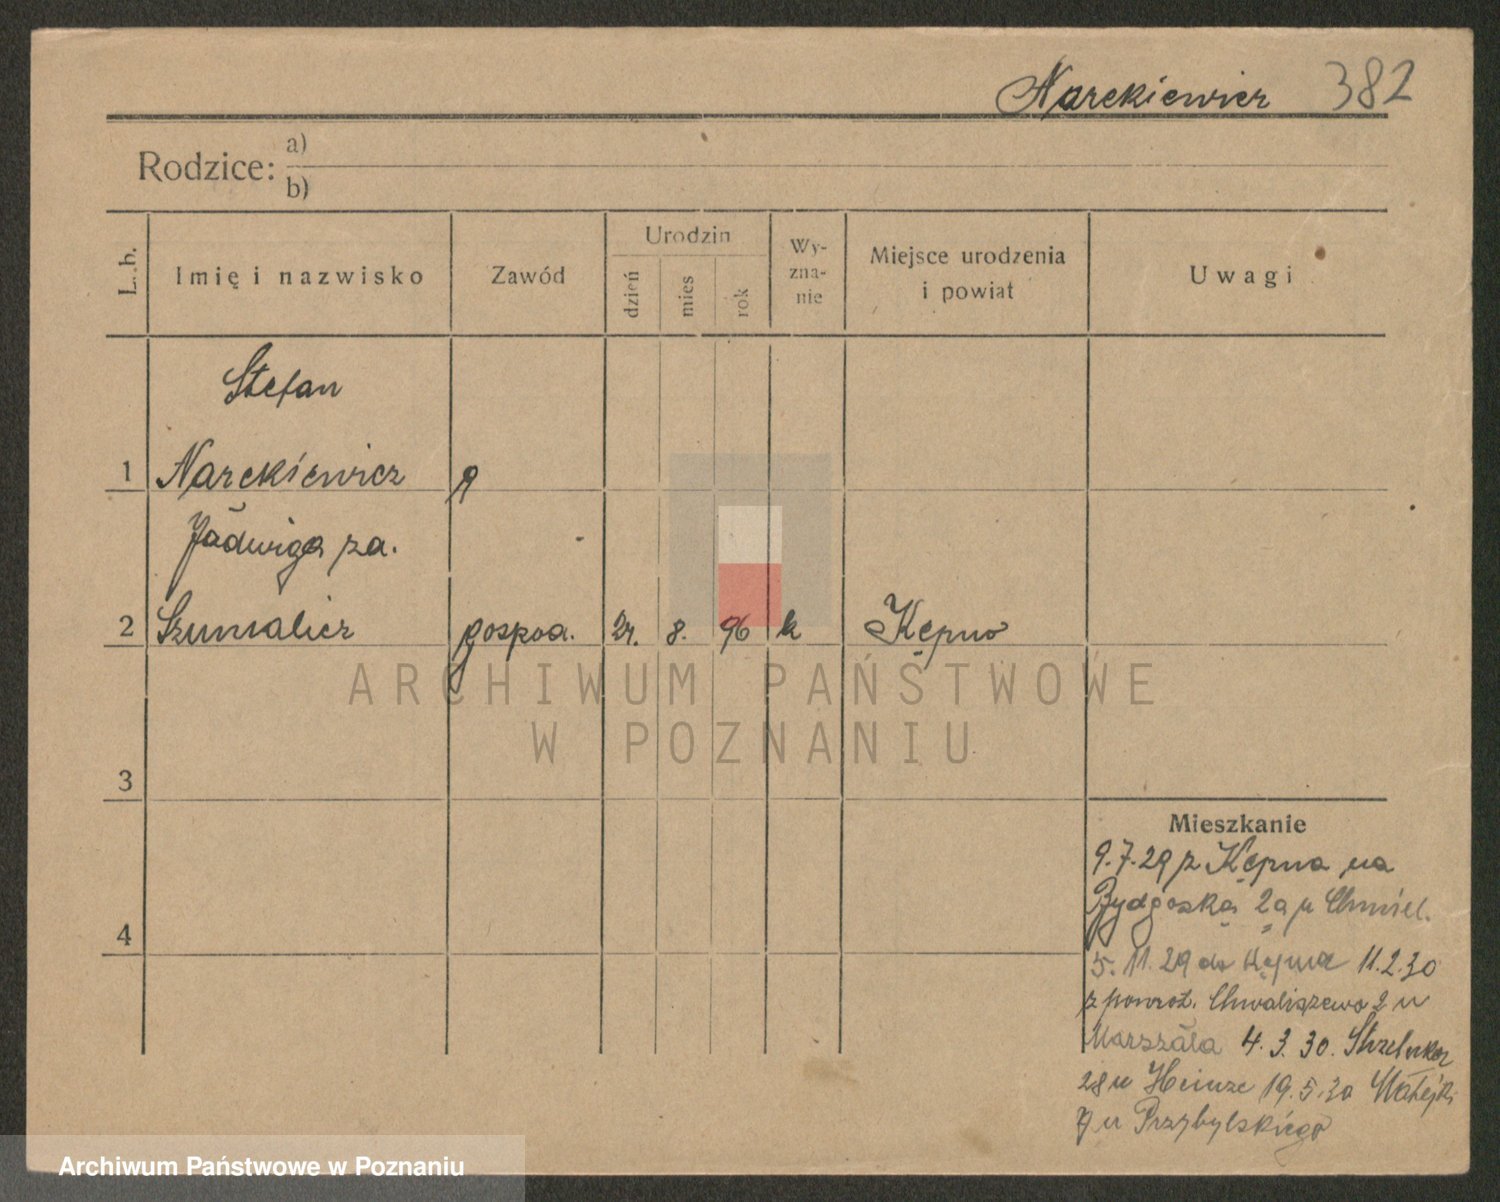 Narckiewicz 382
Rodzice: a)
b)
L. b.
Imię i nazwisko
Zawód
Urodzin
dzień
mies
rok
Wy-
zna-
nie
Miejsce urodzenia
i powiat
Uwagi
Stefan
1 Narckiewicz
Jadwiga za.
2 Szumalicz gospod. 8. 96 k Kępno
ARCHIWUM PAŃSTWOWE
W POZNANIU
3
4
Mieszkanie
9.7.29 z Kępna na
Bydgoską 2a u Chmiel.
5.11.29 do Kępna 11.2.30
z powrot. Chwaliszewo 2 u
Marszała 4.3.30. Strzelecka
28 u Heinze 19.5.30 Matejki
7 u Przybylskiego
Archiwum Państwowe w Poznaniu